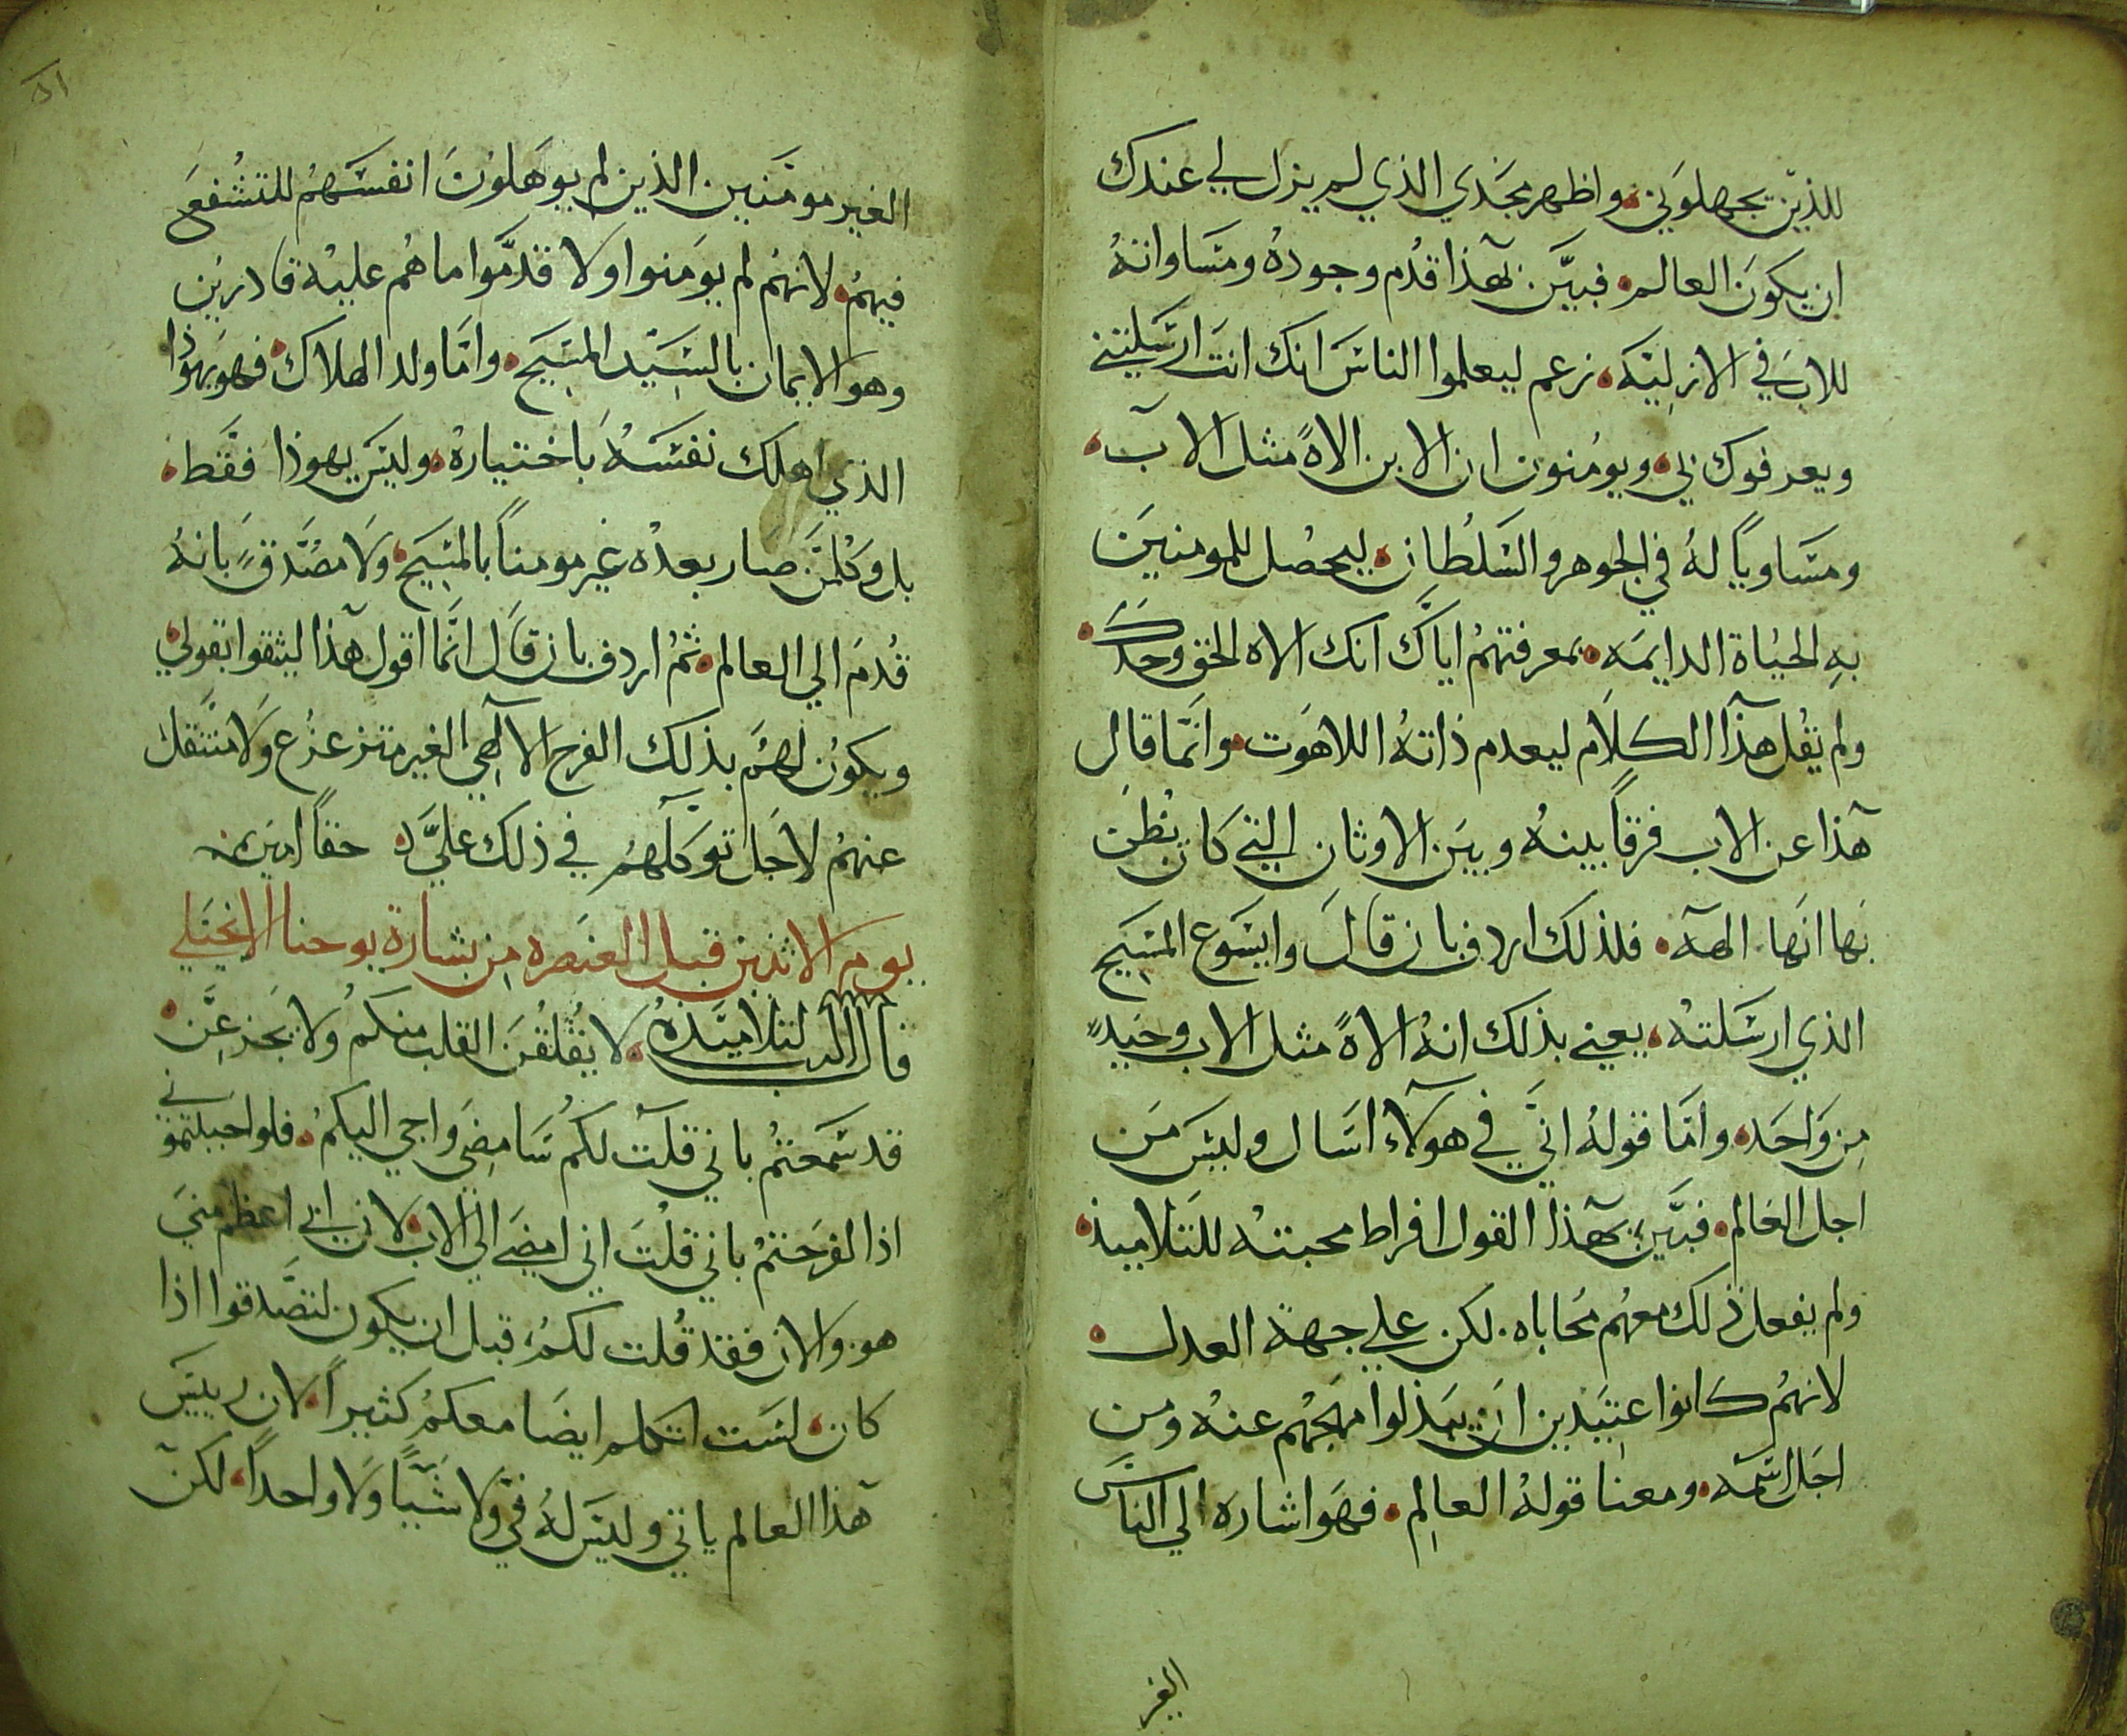 للذين يجهلوني، واظهر مجدي الذي لم يزل لي عندك
ان يكون العالم، فبين بهذا قدم وجوده ومساواته
للاب في الازليه، زعم ليعلموا الناس انك انت ارسلتني
ويعرفوك بي، ويومنون ان الابن الاهً مثل الآب،
ومساوياً له في الجوهر والسلطان، ليحصل للمومنين
به الحياة الدايمه، بمعرفتهم اياك انك الاه الحق وحدك،
ولم يقل هذا الكلام ليعدم ذاته اللاهوت، وانما قال
هذا عن الاب فرقاً بينه وبين الاوثان التي كان يظن
بها انها الهه، فلذلك اردف بان قال وايسوع المسيح
الذي ارسلته، يعني بذلك انه الاهً مثل الاب وحيدٍ
من واحد، واما قوله اني في هولاء اسال وليس من
اجل العالم، فبين بهذا القول افراط محبته للتلاميذ،
ولم يفعل ذلك معهم محاباه. لكن علي جهة العدل،
لانهم كانوا عتيدين ان يبذلوا مهجهم عنه ومن
اجل اسمه، ومعنا قوله العالم، فهو اشاره الي الناس
الغير
٥١
الغير مومنين الذين لم يوهلون انفسهم للتشفع
فيهم، لانهم لم يومنوا ولا قدموا ما هم عليه قادرين
وهو الايمان بالسيد المسيح، واما ولد الهلاك، فهو يهوذا
الذي اهلك نفسه باختياره، وليس يهوذا فقط،
بل وكلمن صار بعده غير مومناً بالمسيح، ولا مصدقٍ بانه
قدم الي العالم، ثم اردف بان قال انما اقول هذا ليثقوا بقولي،
ويكون لهم بذلك الفرح الالهي الغير متزعزع ولا منتقل
عنهم لاجل توكلهم في ذلك علي، حقاً امين
يوم الاثنين قبل العنصره من بشارة يوحنا الانجيلي
قال الرب لتلاميذه، لا يقلقن القلب منكم ولا يجزعن،
قد سمعتم باني قلت لكم سامضي واجي اليكم، فلو احببتموني
اذا لفرحتم باني قلت اني امضي الي الاب، لان ابي اعظم مني
هو. والان فقد قلت لكم، قبل ان يكون لتصدقوا اذا
كان، لست اتكلم ايضا معكم كثيراً، لان رييس
هذا العالم ياتي وليس له في ولا شياً ولا واحداً، لكن